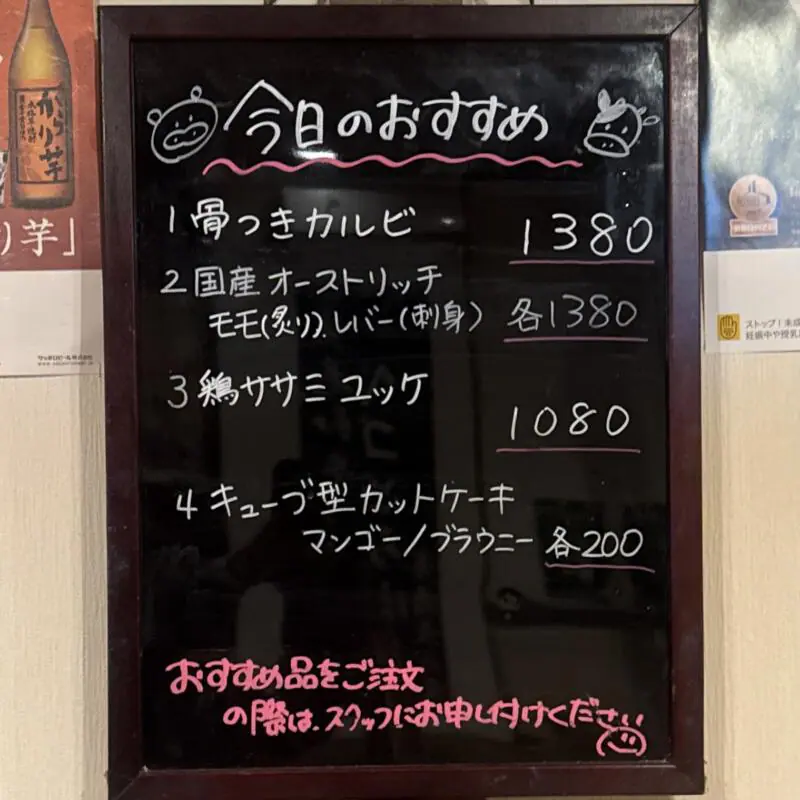 今日のおすすめ
1 骨つきカルビ 1380
2 国産オーストリッチ
モモ(炙り)、レバー(刺身) 各1380
3 鶏ササミユッケ
1080
4 キューブ型カットケーキ
マンゴー/ブラウニー 各200
おすすめ品をご注文
の際は、スタッフにお申し付けください
からり芋
り芋」
サッポロビール株式会社
ストップ!未成
妊娠中や授乳